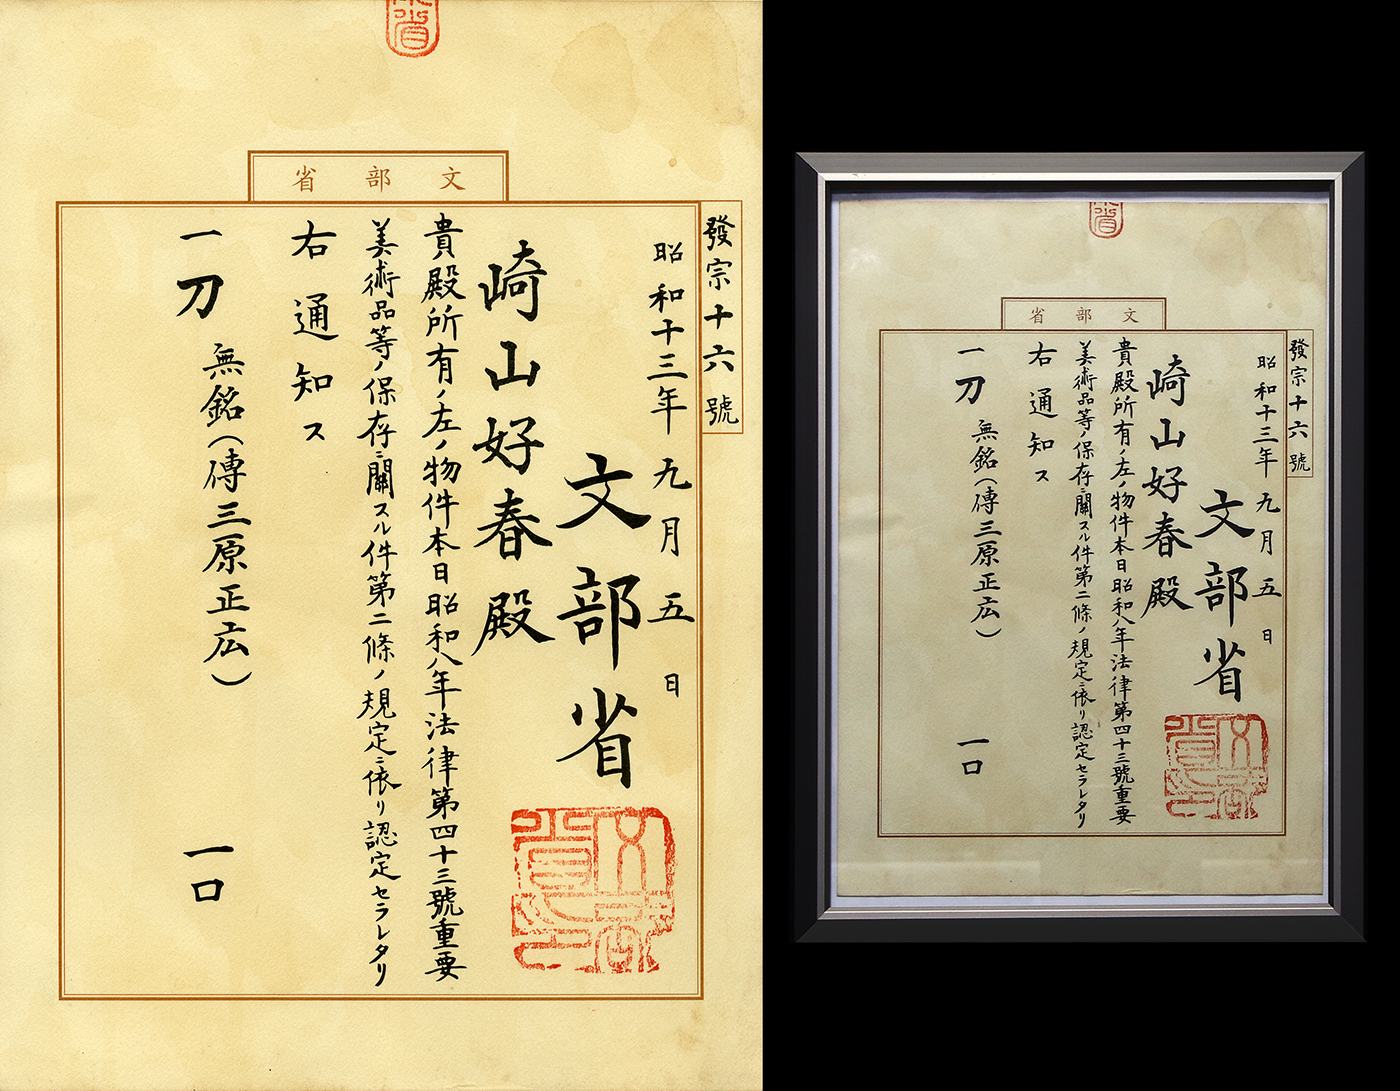 文部省
發宗十六號
昭和十三年九月五日
文部省
崎山好春殿
貴殿所有ノ左ノ物件本日昭和八年法律第四十三號重要
美術品等ノ保存ニ關スル件第二條ノ規定ニ依リ認定セラレタリ
右通知ス
一刀 無銘(傳三原正広) 一口
文部省
發宗十六號
昭和十三年九月五日
文部省
崎山好春殿
貴殿所有ノ左ノ物件本日昭和八年法律第四十三號重要
美術品等ノ保存ニ關スル件第二條ノ規定ニ依リ認定セラレタリ
右通知ス
一刀 無銘(傳三原正広) 一口